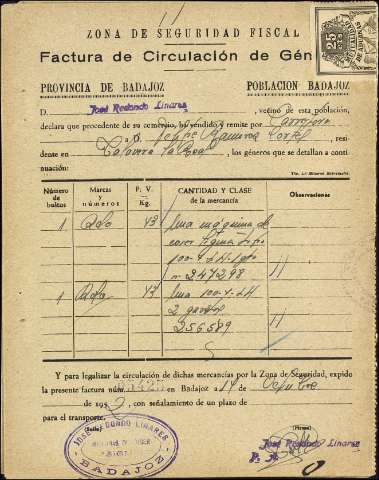 ZONA DE SEGURIDAD FISCAL
Factura de Circulación de Gén
25
PROVINCIA DE BADAJOZ POBLACION BADAJOZ
D. José Redondo Linares, vecino de esta población,
declara que procedente de su comercio, ha vendido y remite por
a D. Felipe Ramirez, resi
dente en Talavera la Real, los géneros que se detallan a conti
nuación:
Número de bultos Marcas y números P. V. Kg. CANTIDAD Y CLASE de la mercancía Observaciones
1 43 Una máquina de
coser Sigma
100-
nº 247298 //
1 43 Una 100-
2
256589 //
Y para legalizar la circulación de dichas mercancías por la Zona de Seguridad, expido
la presente factura núm. en Badajoz a 14 de Octubre
de 195, con señalamiento de un plazo de
para el transporte.
(Sello) (Firma)
JOSE REDONDO LINARES
BADAJOZ
José Redondo Linares
P. A.